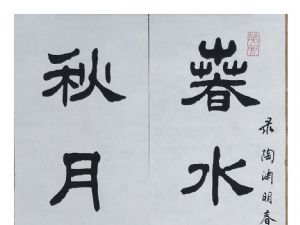 录陶渊明春
春水
秋月